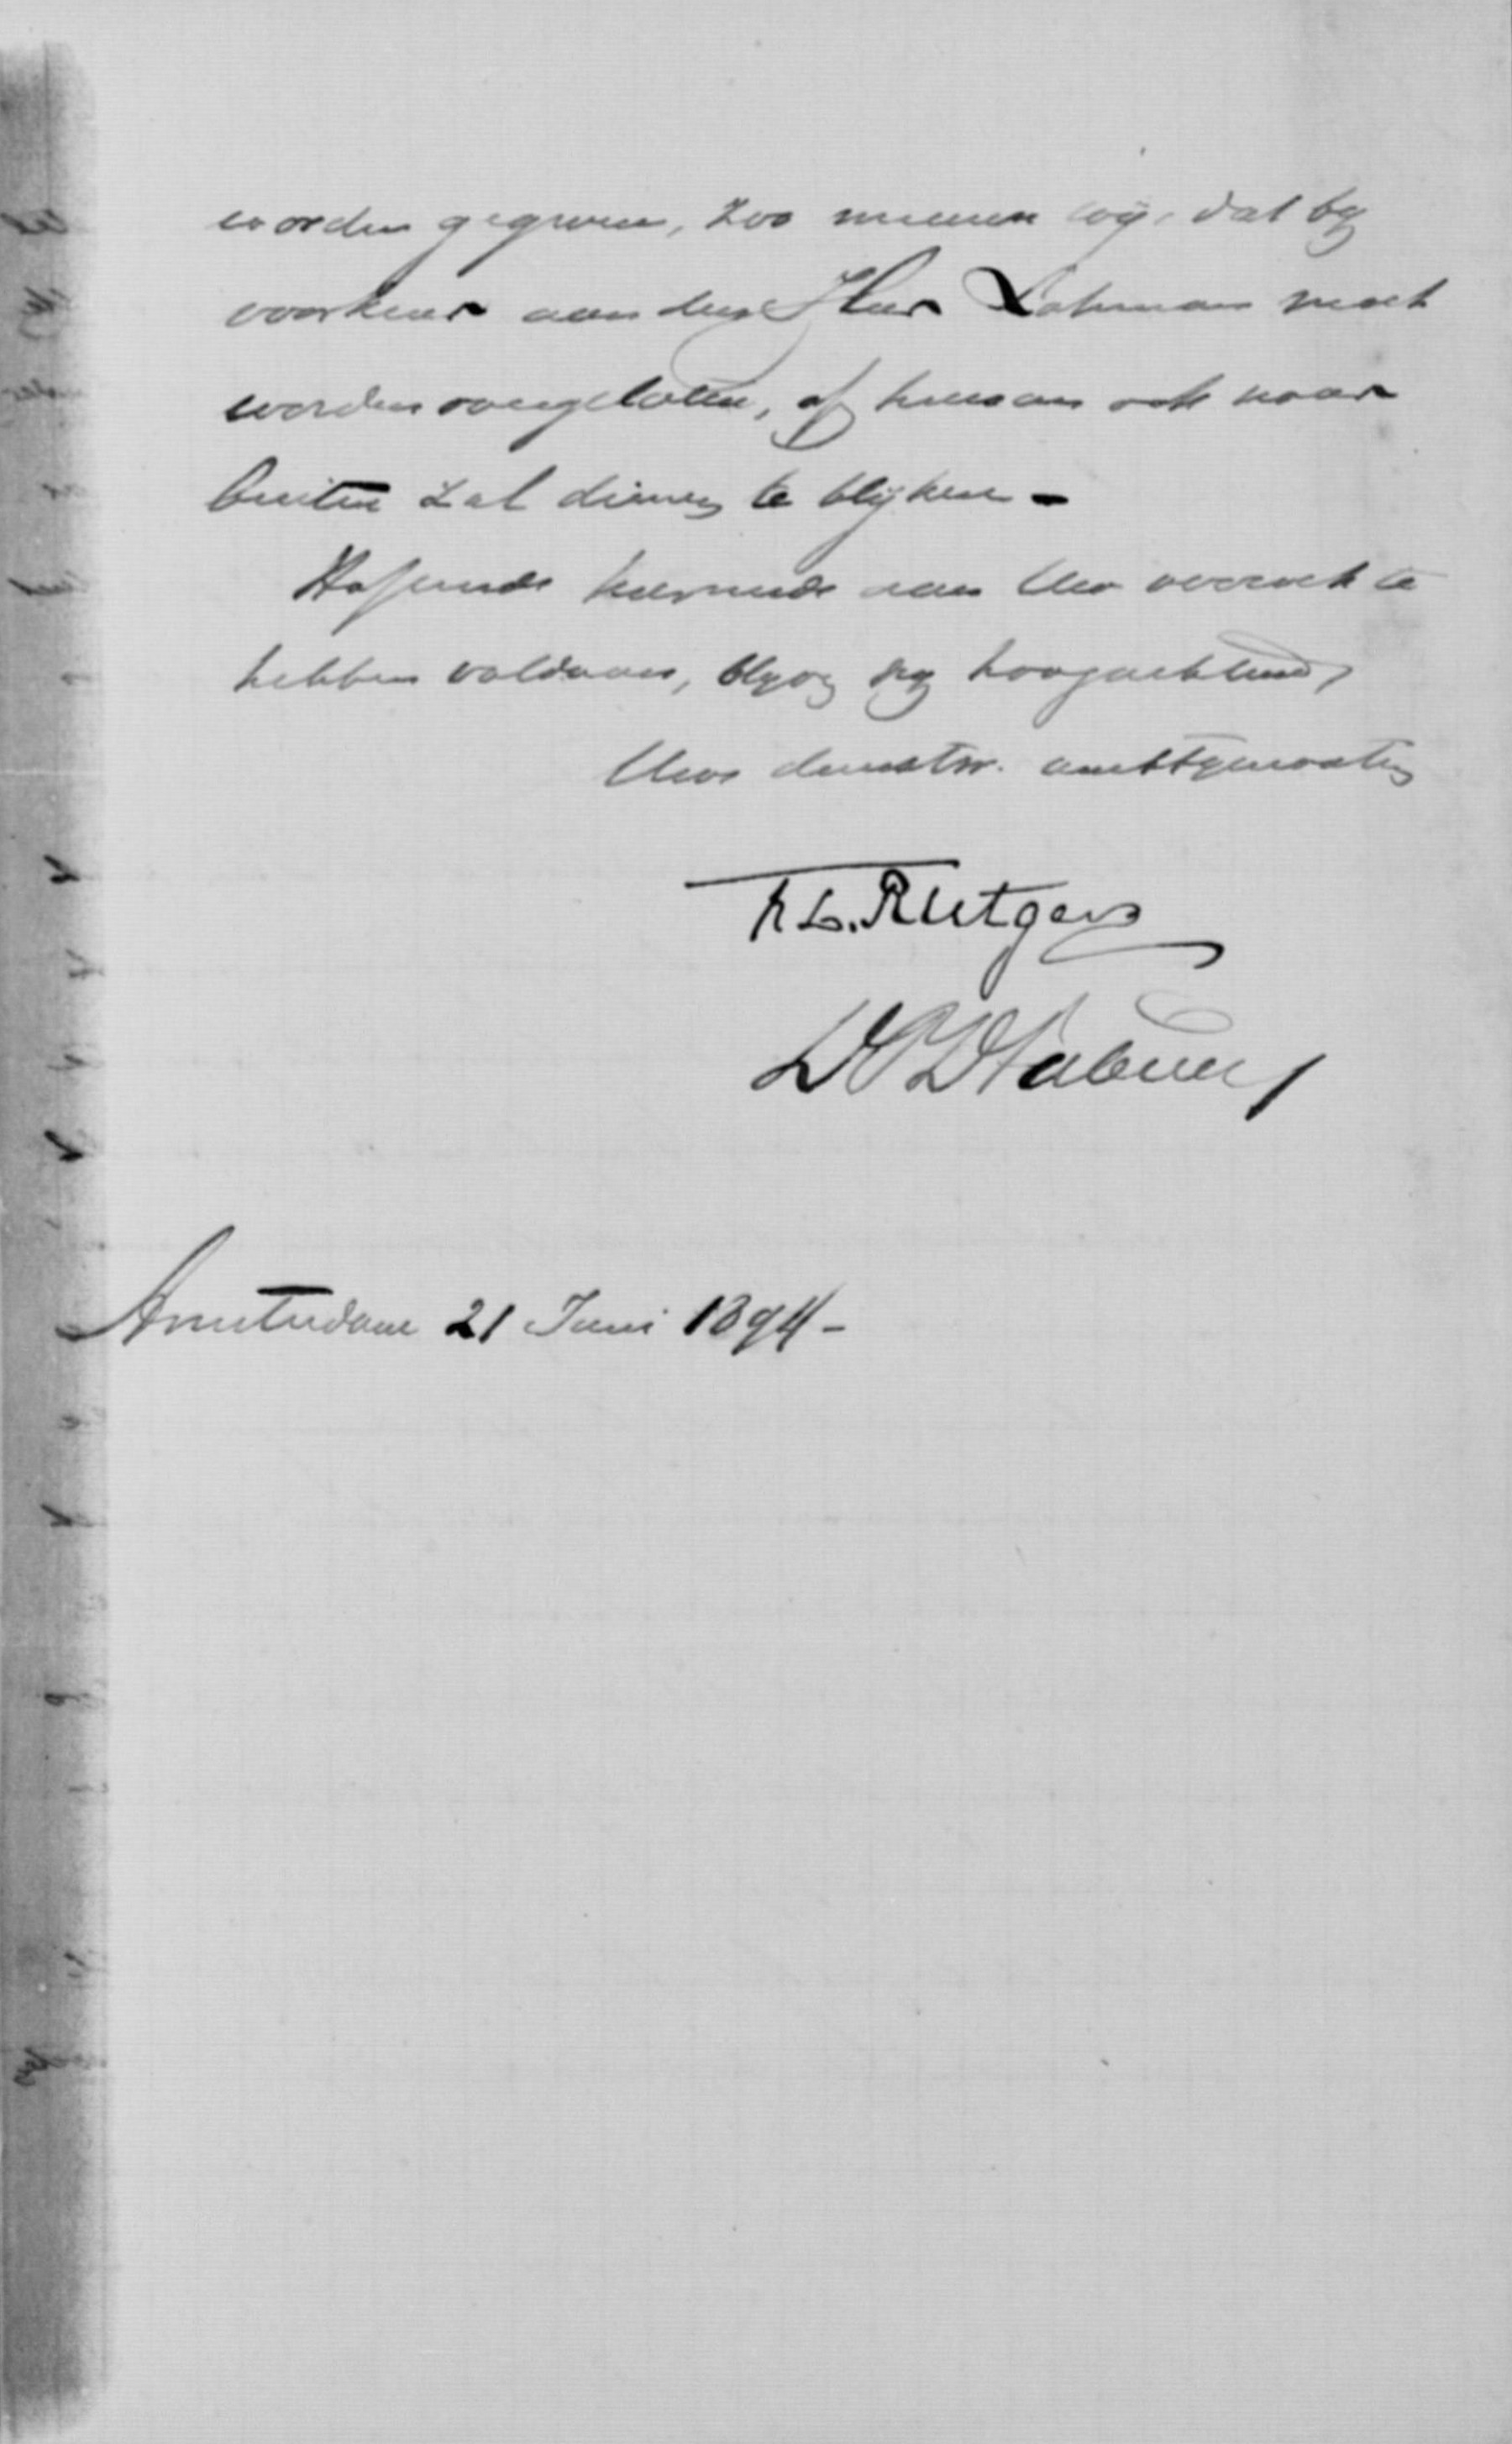 worden gegeven, zoo meenen wij, dat bij
voorkeur aan den Heer Lohman moet
worden overgelaten, of hiervan ook naar
buiten zal dienen te blijken –
Hopende hiermede aan Uw verzoek te
hebben voldaan, blijven wij hoogachtend,
Uwe dienstw. ambtgenooten
F. L. Rutgers
D P D Fabius
Amsterdam 21 Juni 1894 –